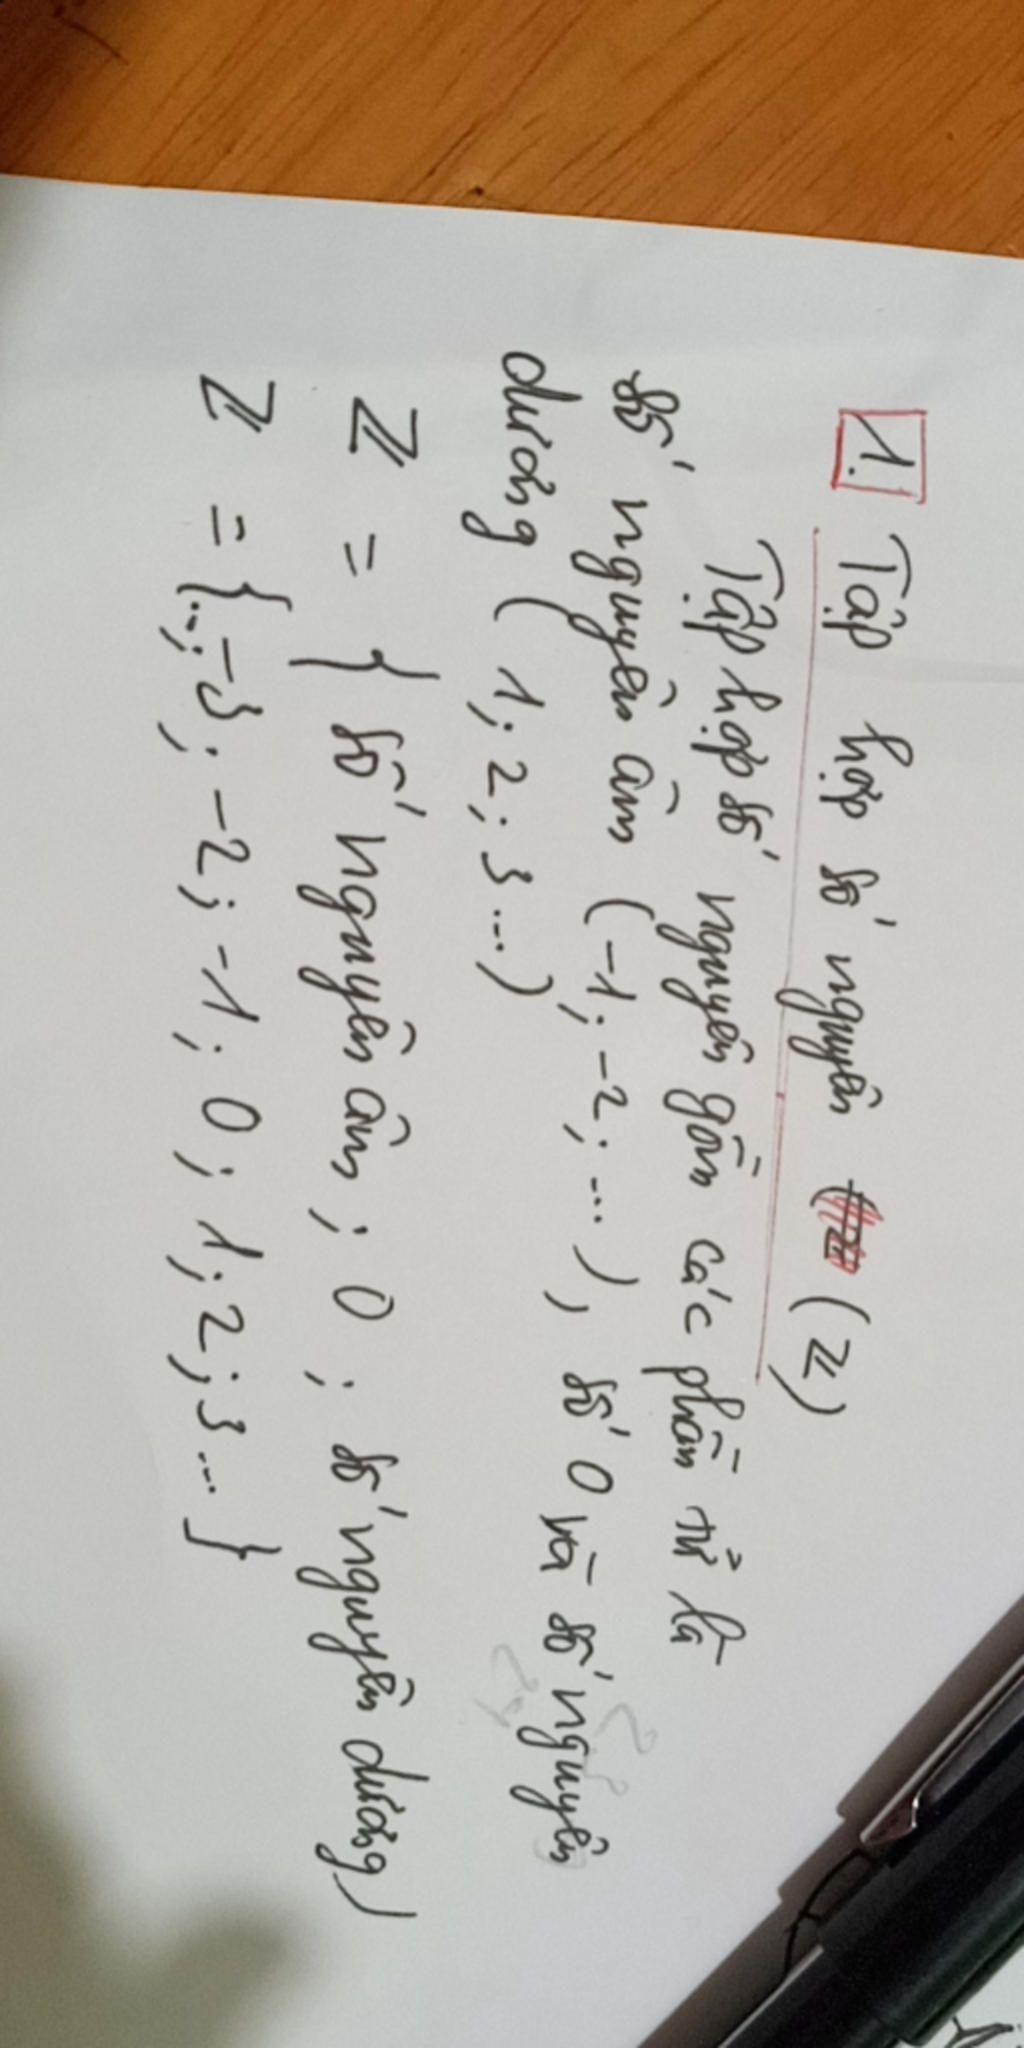 1. Tập hợp số nguyên (Z)
Tập hợp số nguyên gồm các phần tử là
số nguyên âm (-1; -2; ...), số 0 và số nguyên
dương (1; 2; 3...)
Z = { số nguyên âm; 0; số nguyên dương)
Z = {...; -3; -2; -1; 0; 1; 2; 3... }